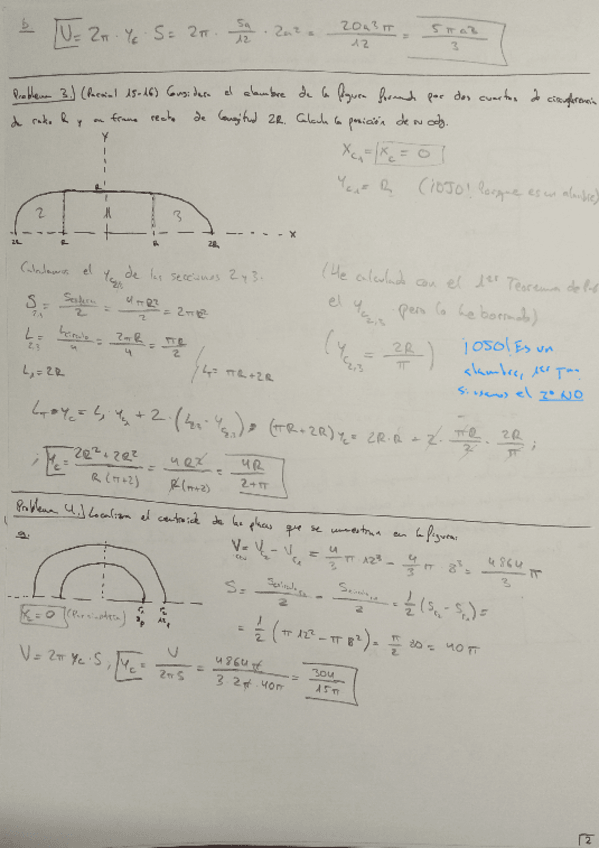 b V = 2π · y_c · S = 2π · 5a/12 · 2a² = 20a³π/12 = 5πa³/3
Problema 3.) (Parcial 15-16) Considera el alambre de la figura formado por dos cuartos de circunferencia
de radio R y un tramo recto de longitud 2R. Calcula la posición de su cdg.
X_c1 = X_c = 0
Y_c1 = R (¡OJO! Porque es un alambre)
Y
R
2 1 3
2R R R 2R X
Calculamos el y_c2,3 de las secciones 2 y 3.
(He calculado con el 1er Teorema de
el y_c2,3 pero lo he borrado)
S_2,3 = /2 = 4πR²/2 = 2πR²
L_2,3 = /4 = 2πR/4 = πR/2
(y_c2,3 = 2R/π)
¡OJO! Es un
alambre, 1er
Si usamos el 2º NO
L_1 = 2R
L_T = πR + 2R
L_T · y_c = L_1 · y_c1 + 2 · (L_2,3 · y_c2,3) ; (πR + 2R) y_c = 2R · R + 2 · πR/2 · 2R/π ;
; y_c = 2R² + 2R² / R(π+2) = 4R² / R(π+2) = 4R / 2+π
Problema 4.) Localiza el centroide de las placas que se muestran en la figura:
a.
V = V_2 - V_1 = 4/3 π 12³ - 4/3 π 8³ = 4864/3 π
S = /2 - /2 = 1/2 (S_r2 - S_r1) =
= 1/2 (π 12² - π 8²) = π/2 80 = 40π
r_1 r_2
8 12
X_c = 0 (Por simetría)
V = 2π y_c · S ; y_c = V / 2πS = 4864π / 3 · 2π · 40π = 304 / 15π
2